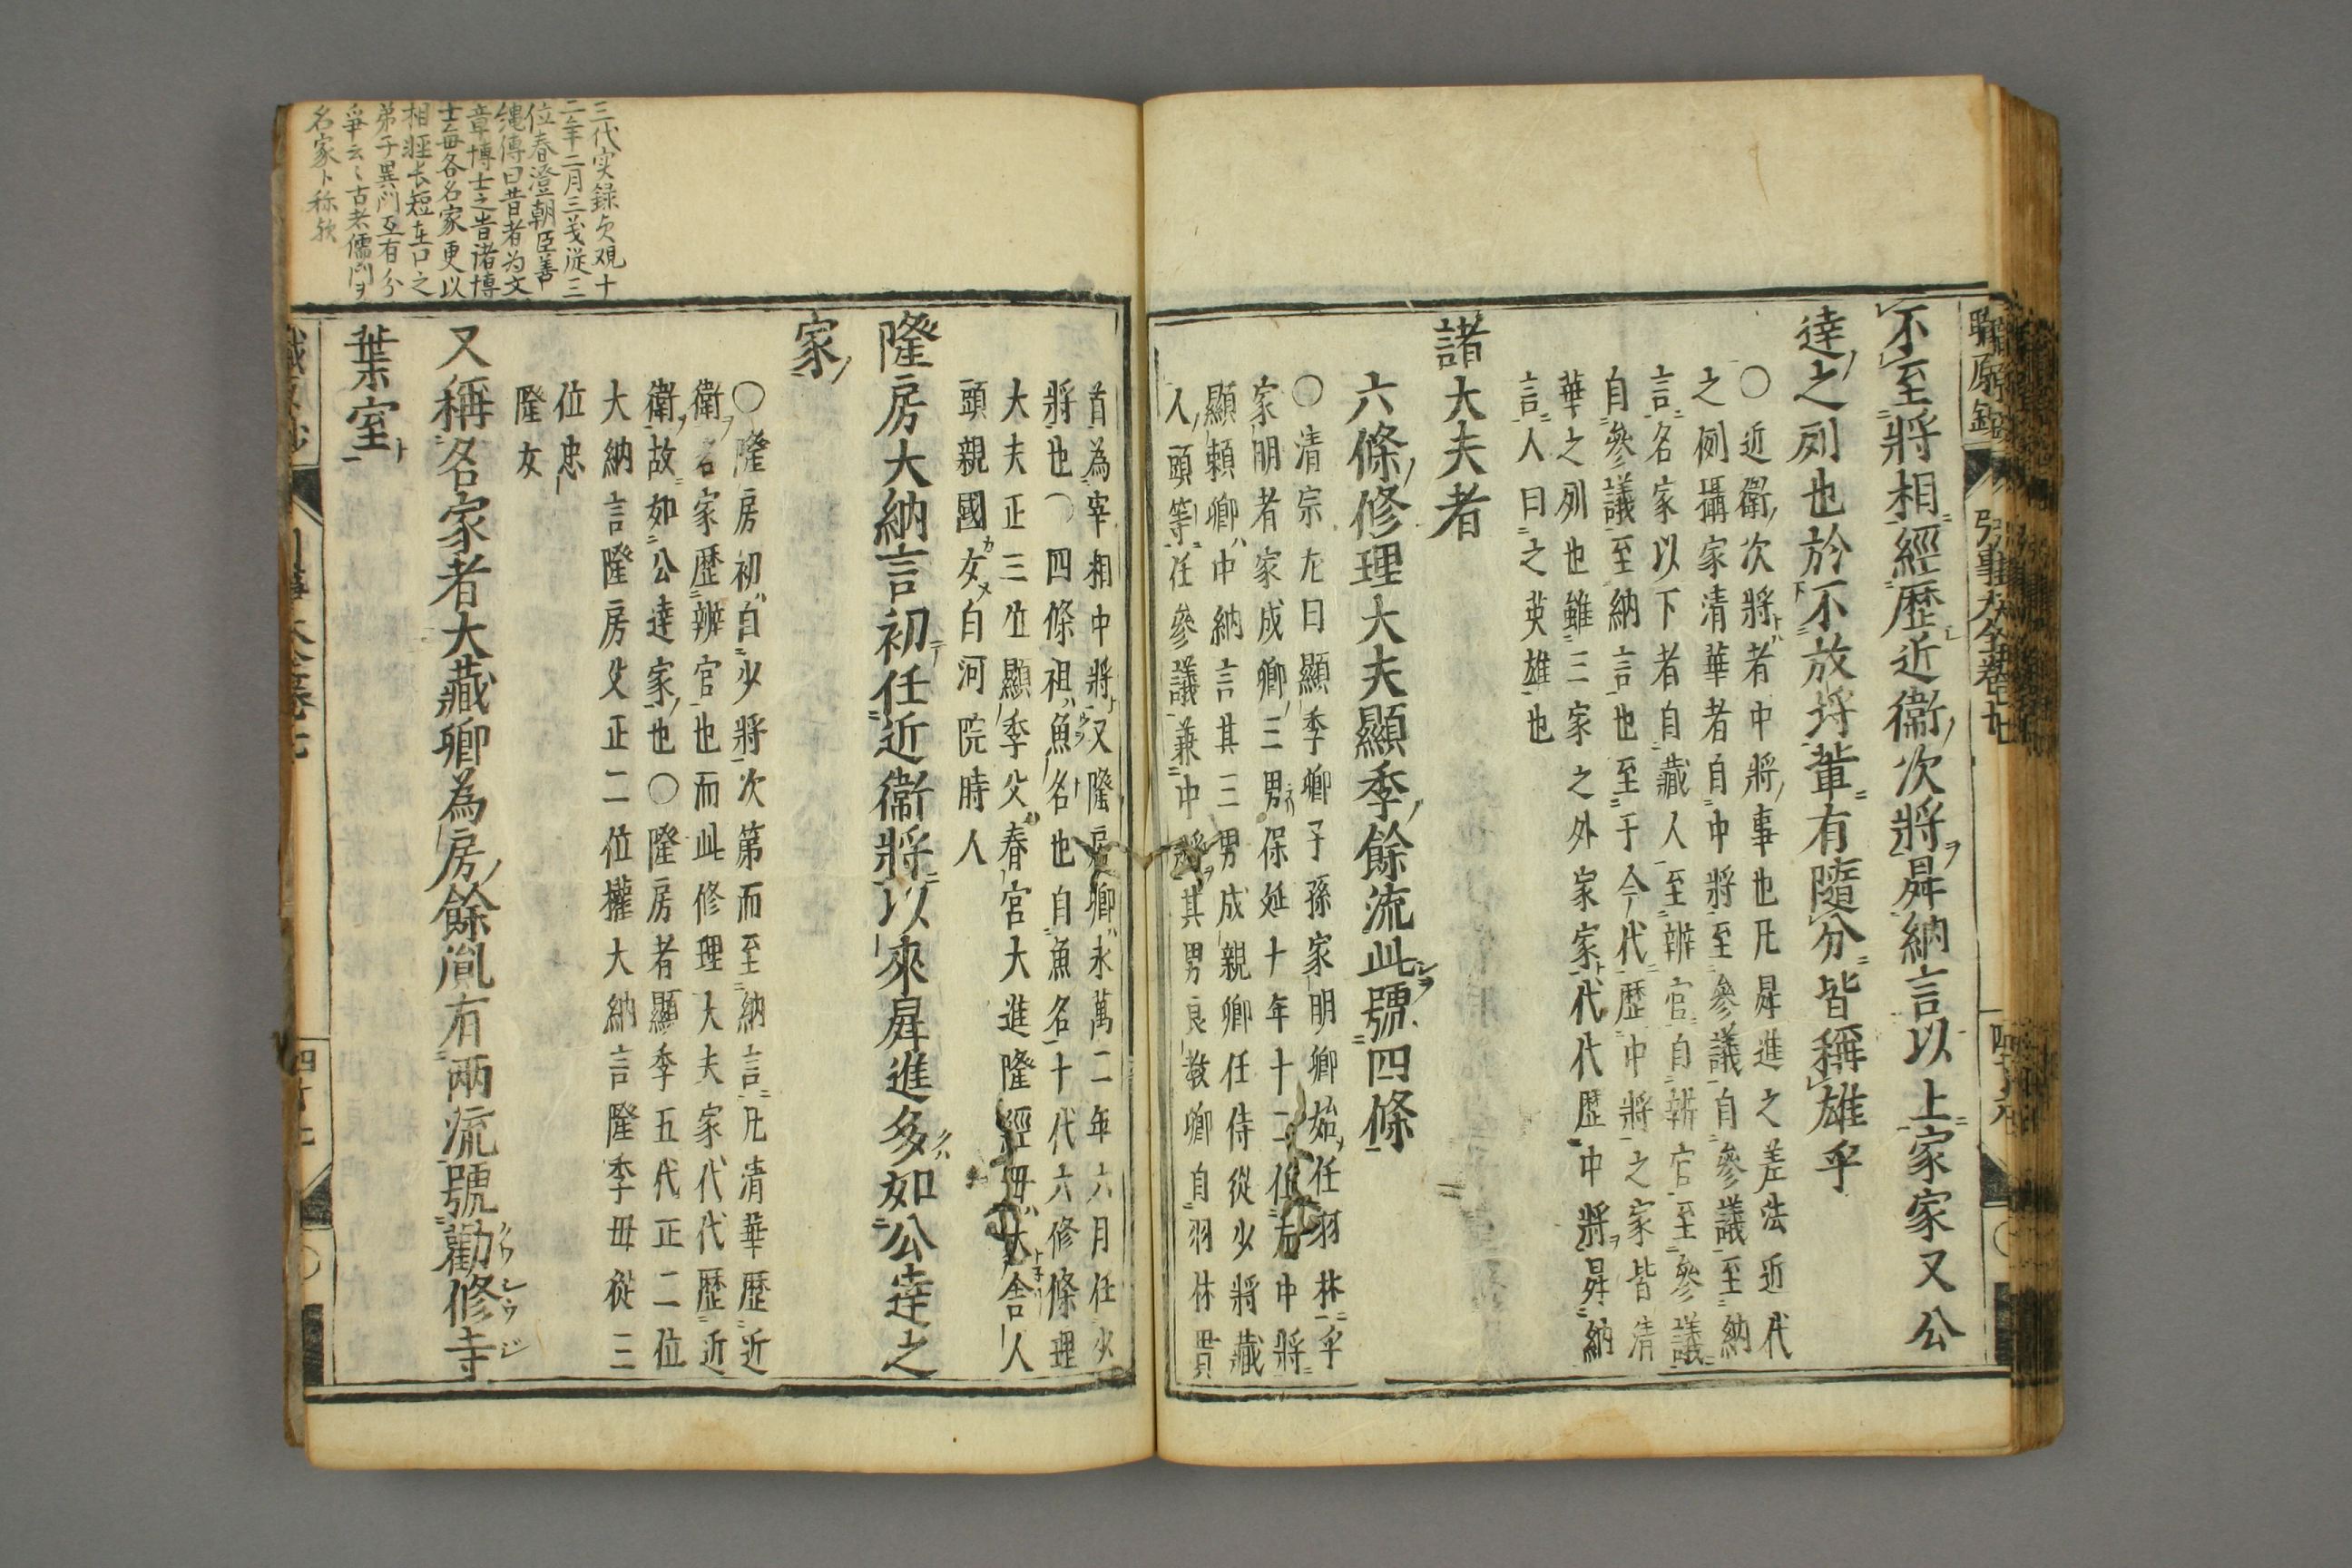 不至將相經歴近衞次將昇納言以上家家又公
達之列也於不放埓輩有隨分皆稱雄乎
〇近衞次將者中將事也凡昇進之差法近代
之例攝家清華者自中將至參議自參議至納
言名家以下者自藏人至辨官自辨官至參議
自參議至納言也至于今代歴中將之家皆清
華之列也雖三家之外家家代代歴中將昇納
言人曰之英雄也
諸大夫者
六條修理大夫顯季餘流此號四條
〇清宗尢曰顯季卿子孫家明卿始任羽林乎
家明者家成卿三男保延十年十二任左中將
顯頼卿中納言其三男成親卿任侍從少將藏
人頭等任參議兼中將其男良教卿自羽林貫
首為宰相中將又隆房卿永萬二年六月任少
將也〇四條祖魚名也自魚名十代六修條理
大夫正三位顯季父春宮大進隆經毋大舎人
頭親國女白河院時人
隆房大納言初任近衞將以來昇進多如公達之
家
〇隆房初自少將次第而至納言凡清華歴近
衛名家歴辨官也而此修理大夫家代代歴近
衛故如公達家也〇隆房者顯季五代正二位
大納言隆房父正二位權大納言隆季毋從三
位忠隆女
又稱名家者大藏卿為房餘胤有兩流號勸修寺
葉室
三代実録貞観十
二年二月三戔従三
位春澄朝臣善
縄傳曰昔者为文
章博士之昔诸博
士每各名家更以
相軽长短在口之
弟子異门互有分
爭云〻古老儒门ヲ
名家ト称欤